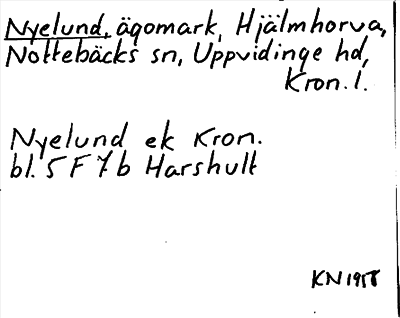 Nyelund, ägomark, Hjälmhorva,
Nottebäcks sn, Uppvidinge hd,
Kron. l.
Nyelund ek Kron.
bl. 5 F 7 b Harshult
KN 1958